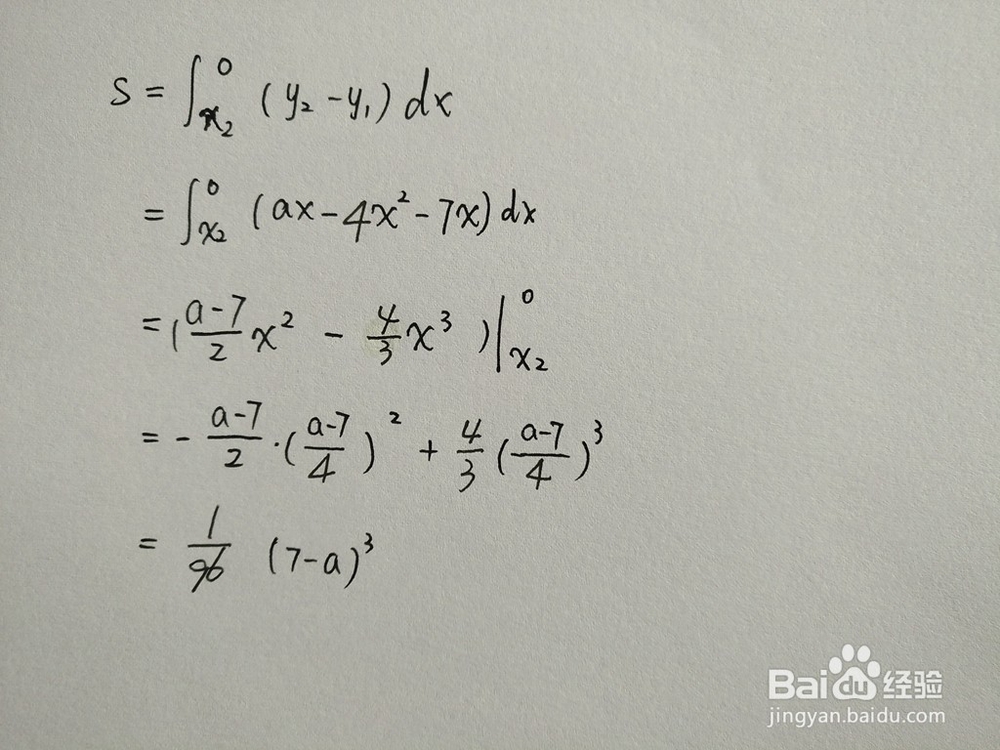 S = ∫_{x₂}^{0} (y₂ - y₁) dx
= ∫_{x₂}^{0} (ax - 4x² - 7x) dx
= (\frac{a-7}{2} x² - \frac{4}{3} x³) |_{x₂}^{0}
= - \frac{a-7}{2} · (\frac{a-7}{4})² + \frac{4}{3} (\frac{a-7}{4})³
= \frac{1}{96} (7-a)³
Baidu 经验
jingyan.baidu.com